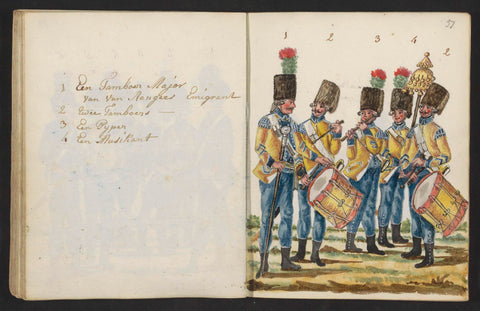 1 Een Tamboer Major
van van Naugres Emigrant
2 twee Tamboers —
3 Een Pyper
4 Een Musikant
1 2 3 4 2
51